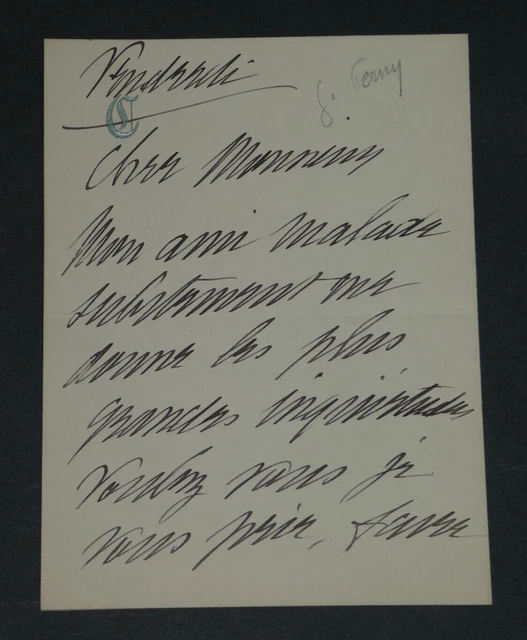 Vendredi
C
Cher Monsieur
Mon ami malade
subitement me
donne les plus
grandes inquiétudes
Voulez vous je
vous prie, faire